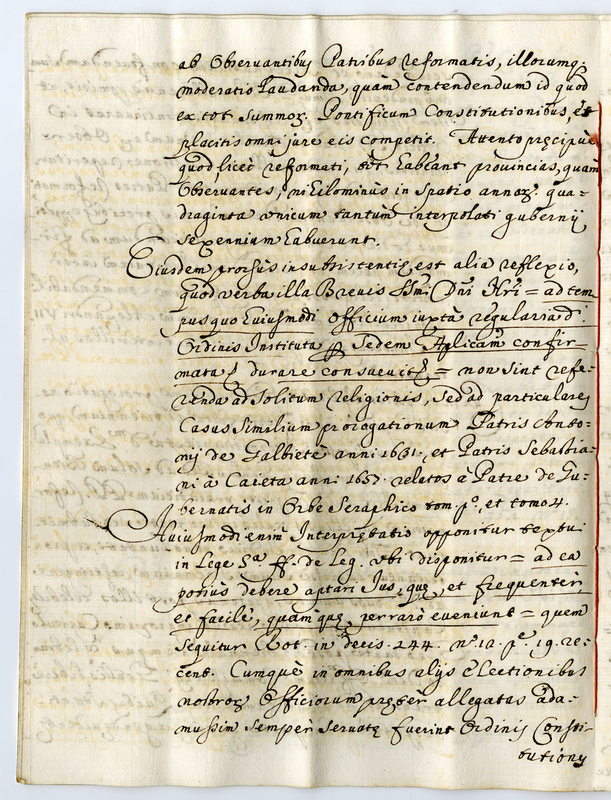 ab Observantibus Patribus reformatis, illorumq;
moderatio laudanda, quàm contendendum id quod
ex tot summor. Pontificum Constitutionibus, et
placitis omni jure eis competit. Attento pręcipuè
quod licet reformati, tùt habeant prouincias, quàm
Observantes, nihilominus in spatio annor. qua=
draginta unicum tantum interpolati gubernij
sexennium habuerunt.
Eiusdem prorsùs insubsistentię est alia reflexio,
quod verba illa Brevis SSmi. Dñi Nri = ad tem
pus quo huiusmodi officium iuxtà regularia d.
Ordinis Instituta p Sedem Aplicam confir=
mata durare consuevit = non sint refe=
renda ad solitum religionis, sed ad particulares
Casus similium prorogationum Patris Anto=
nij de Galbietè anni 1631. et Patris Sebastia=
ni à Caieta anni 1657. relatos à Patre de Gu=
bernatis in Orbe Seraphico tom. p.º et tomo 4.
Huiusmodi enim Interprętatio opponitur textui
in Lege 5.ª ff. de Leg. ubi disponitur = ad ea
potiùs debere aptari Jus, quę, et frequentèr,
et facilè, quàm quę perrarò eveniunt = quem
sequitur Rot. in decis. 244. nº. 12. p.e 19. re=
cent. Cumquè in omnibus alijs electionibus
nostror. Officiorum pręter allegatas ada=
mussim sempèr servatę fuerint Ordinis Consti=
tutiones